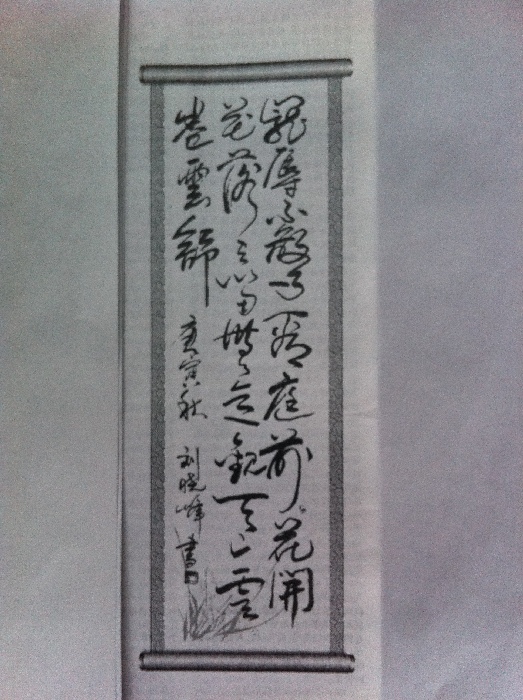 寵辱不驚看庭前花開
花落去留無意觀天上雲
卷雲舒 庚寅秋 刘晓峰書